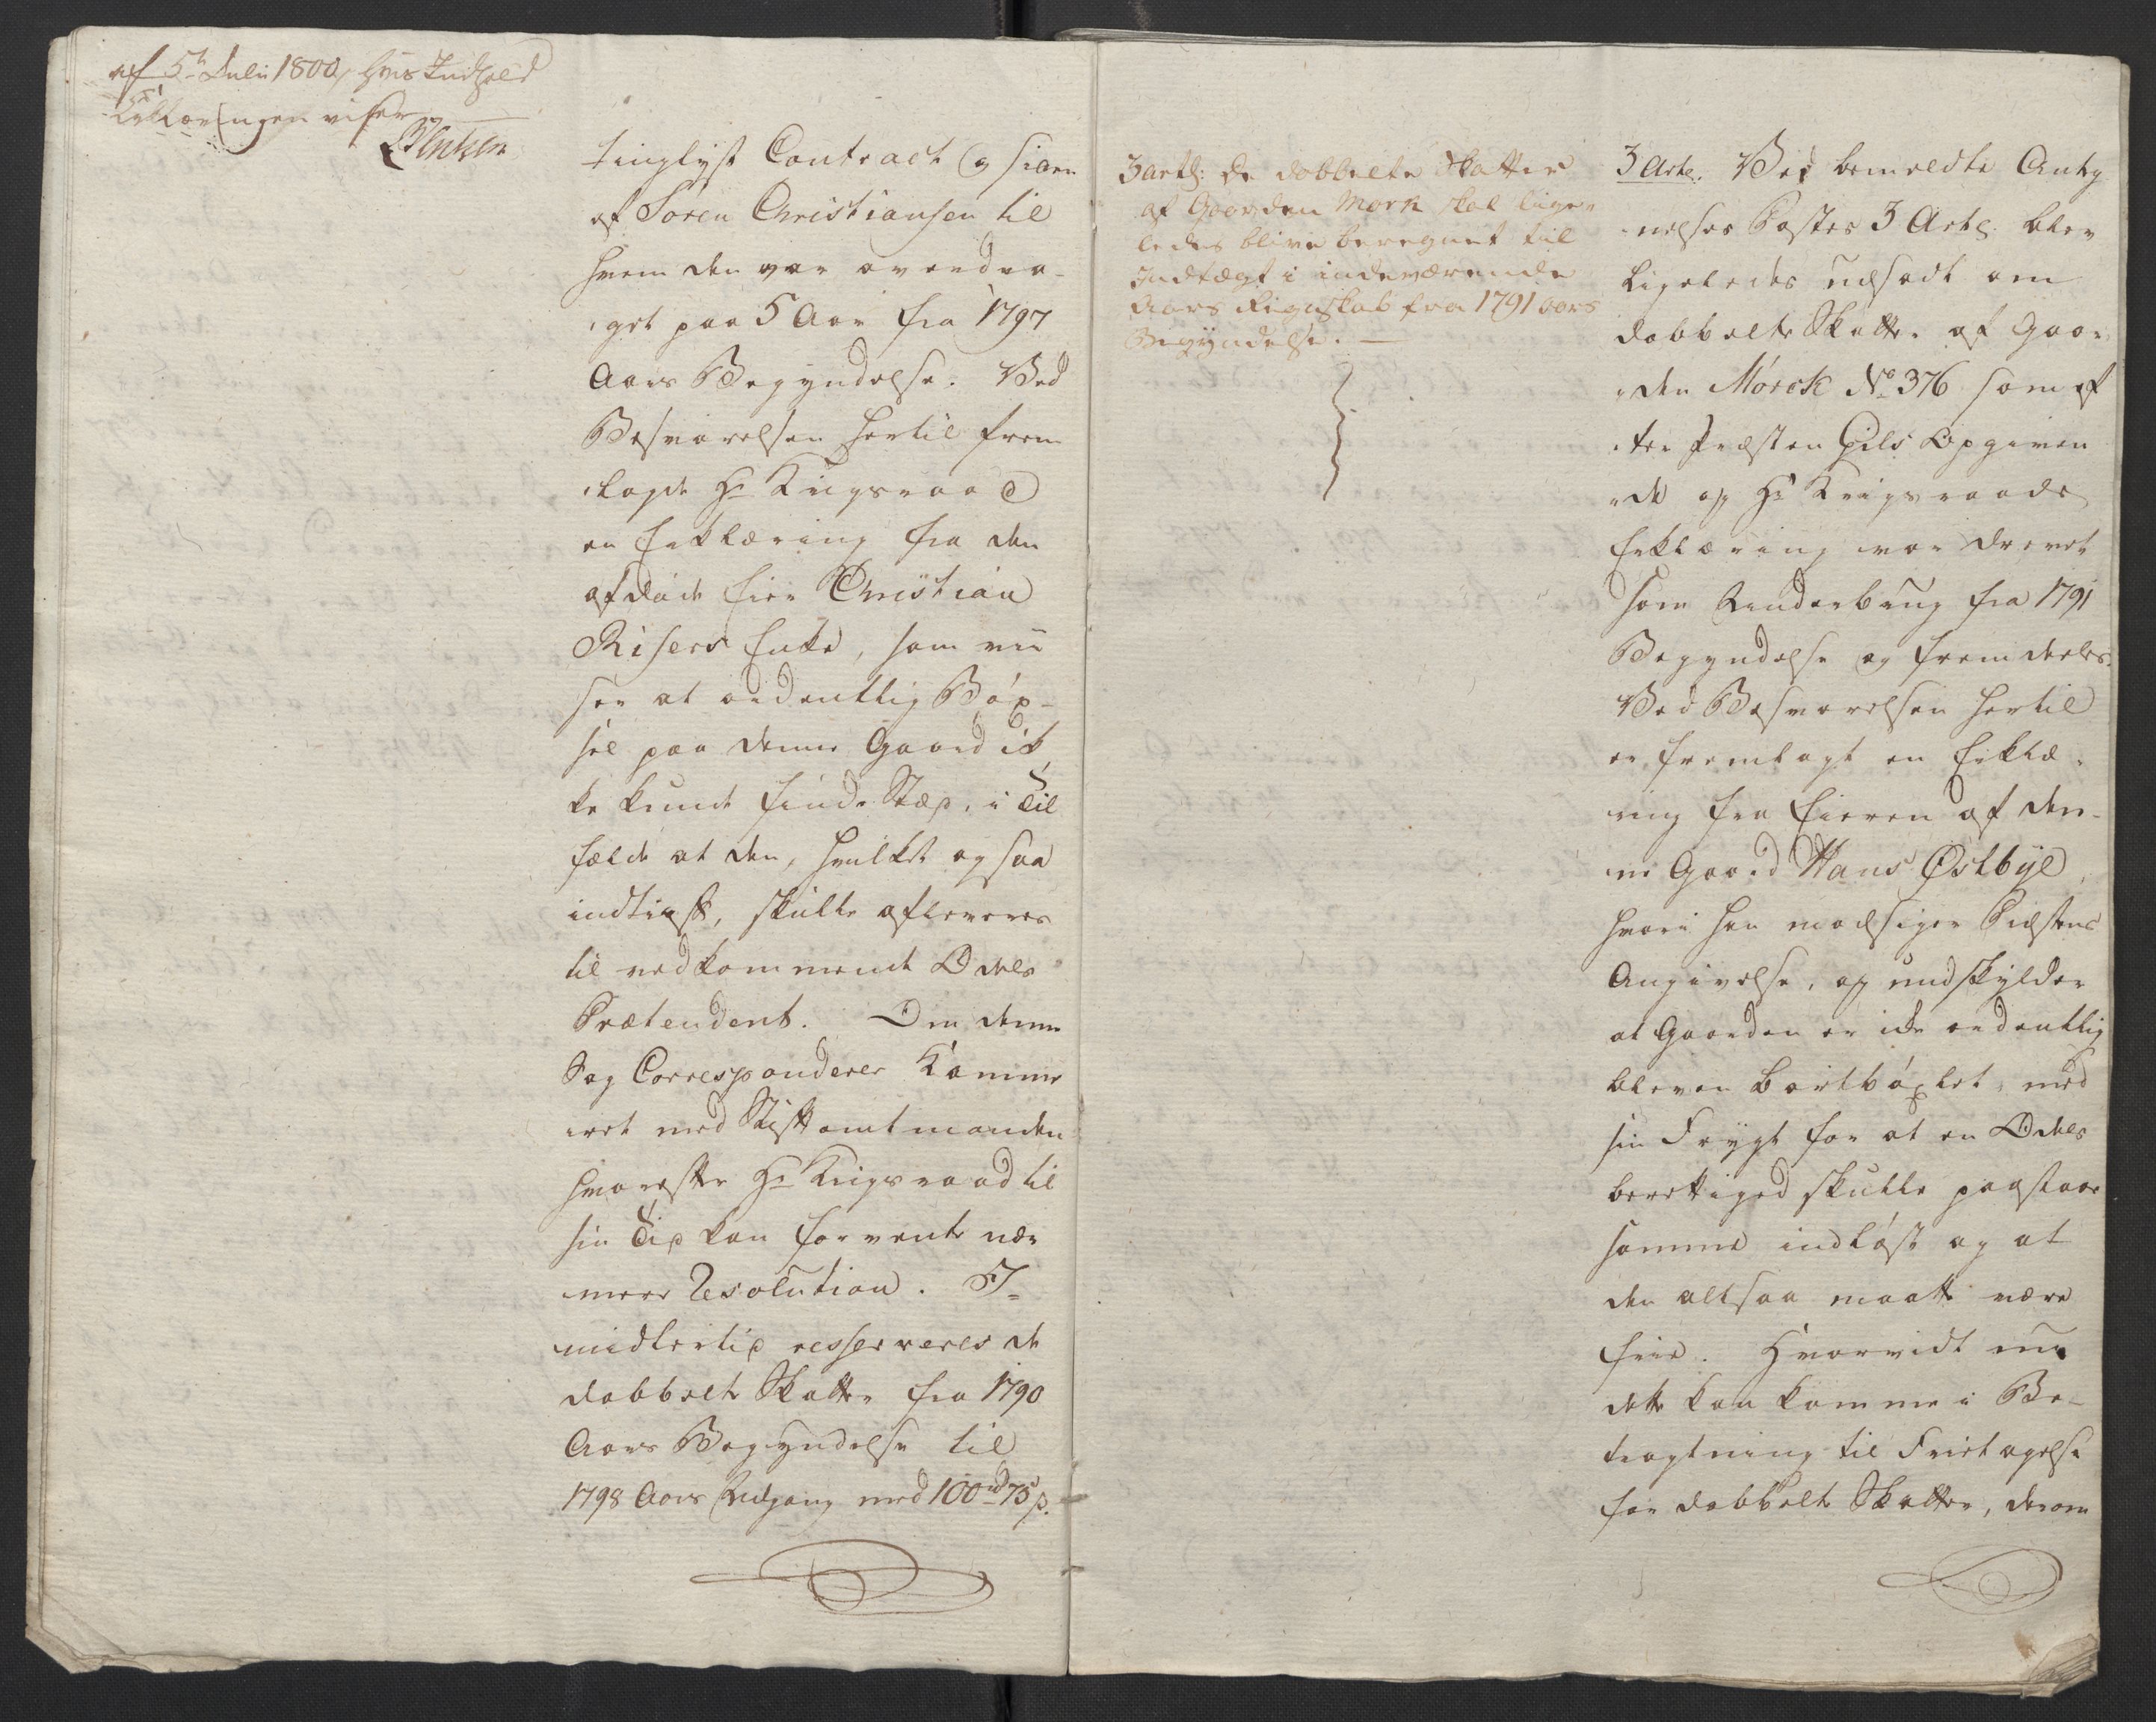 af 5te Julii 1800, hvis Indhold
Erklæringen viser
tinglyst Contract og siden
af Sören Christiansen til
hvem den var overdra-
get paa 5 Aar fra 1797
Aars Begyndelse. Ved
Besvarelsen hertil frem
lagde Hr Krigsraad
en Erklæring fra den
afdöde Eier Christian
Risers Enke, som vii
ser at ordentlig Böx-
sel paa denne Gaard ik
ke kunde finde Stæd, i Til
fælde at den, hvilket og saa
indtraf, skulle afleveres
til vedkommende Odels
Prætendent. Om denne
Sag Corresponderer Kamme
ret med Stiftamtmanden
hvorefter Hr Krigsraad til
sin Tid kan forvente nær
mere Resolution. I-
midlertid resserveres de
dobbelte Skatter fra 1790
Aars Begyndelse til
1798 Aars Udgang med 100 rd 75 s.
3 Arth: De dobbelte Skatter
af Gaarden Mork skal lige-
ledes blive beregnet til
Indtægt i indeværende
Aars Regnskab fra 1791 aars
Begyndelse.
3 Arth. Ved bemeldte Anteg
nelses Postes 3 Arth. blev
ligeledes udsadt om
dobbelte Skatter af Gaar
den Mörck No 376 som ef
ter Præsten Opgiven
de og Hr Krigsraads
Erklæring var drevet
som Underbrug fra 1791
Begyndelse og fremdeeles.
Ved Besvarelsen hertil
er fremlagt en Erklæ-
ring fra Eieren af den-
ne Gaard Hans Östbye
hvori han modsiger Præstens
Angivelse, og undskylder
at Gaarden er icke ordentlig
bleven bortböxlet, med
sin Frygt for at en Odels
berettiged skulle paastaae
samme indlöst og at
den altsaa maatte være
frie. Hvorvidt nu
dette kan komme i Be-
tragtning til Fritagelse
for dobbelte Skatter, derom